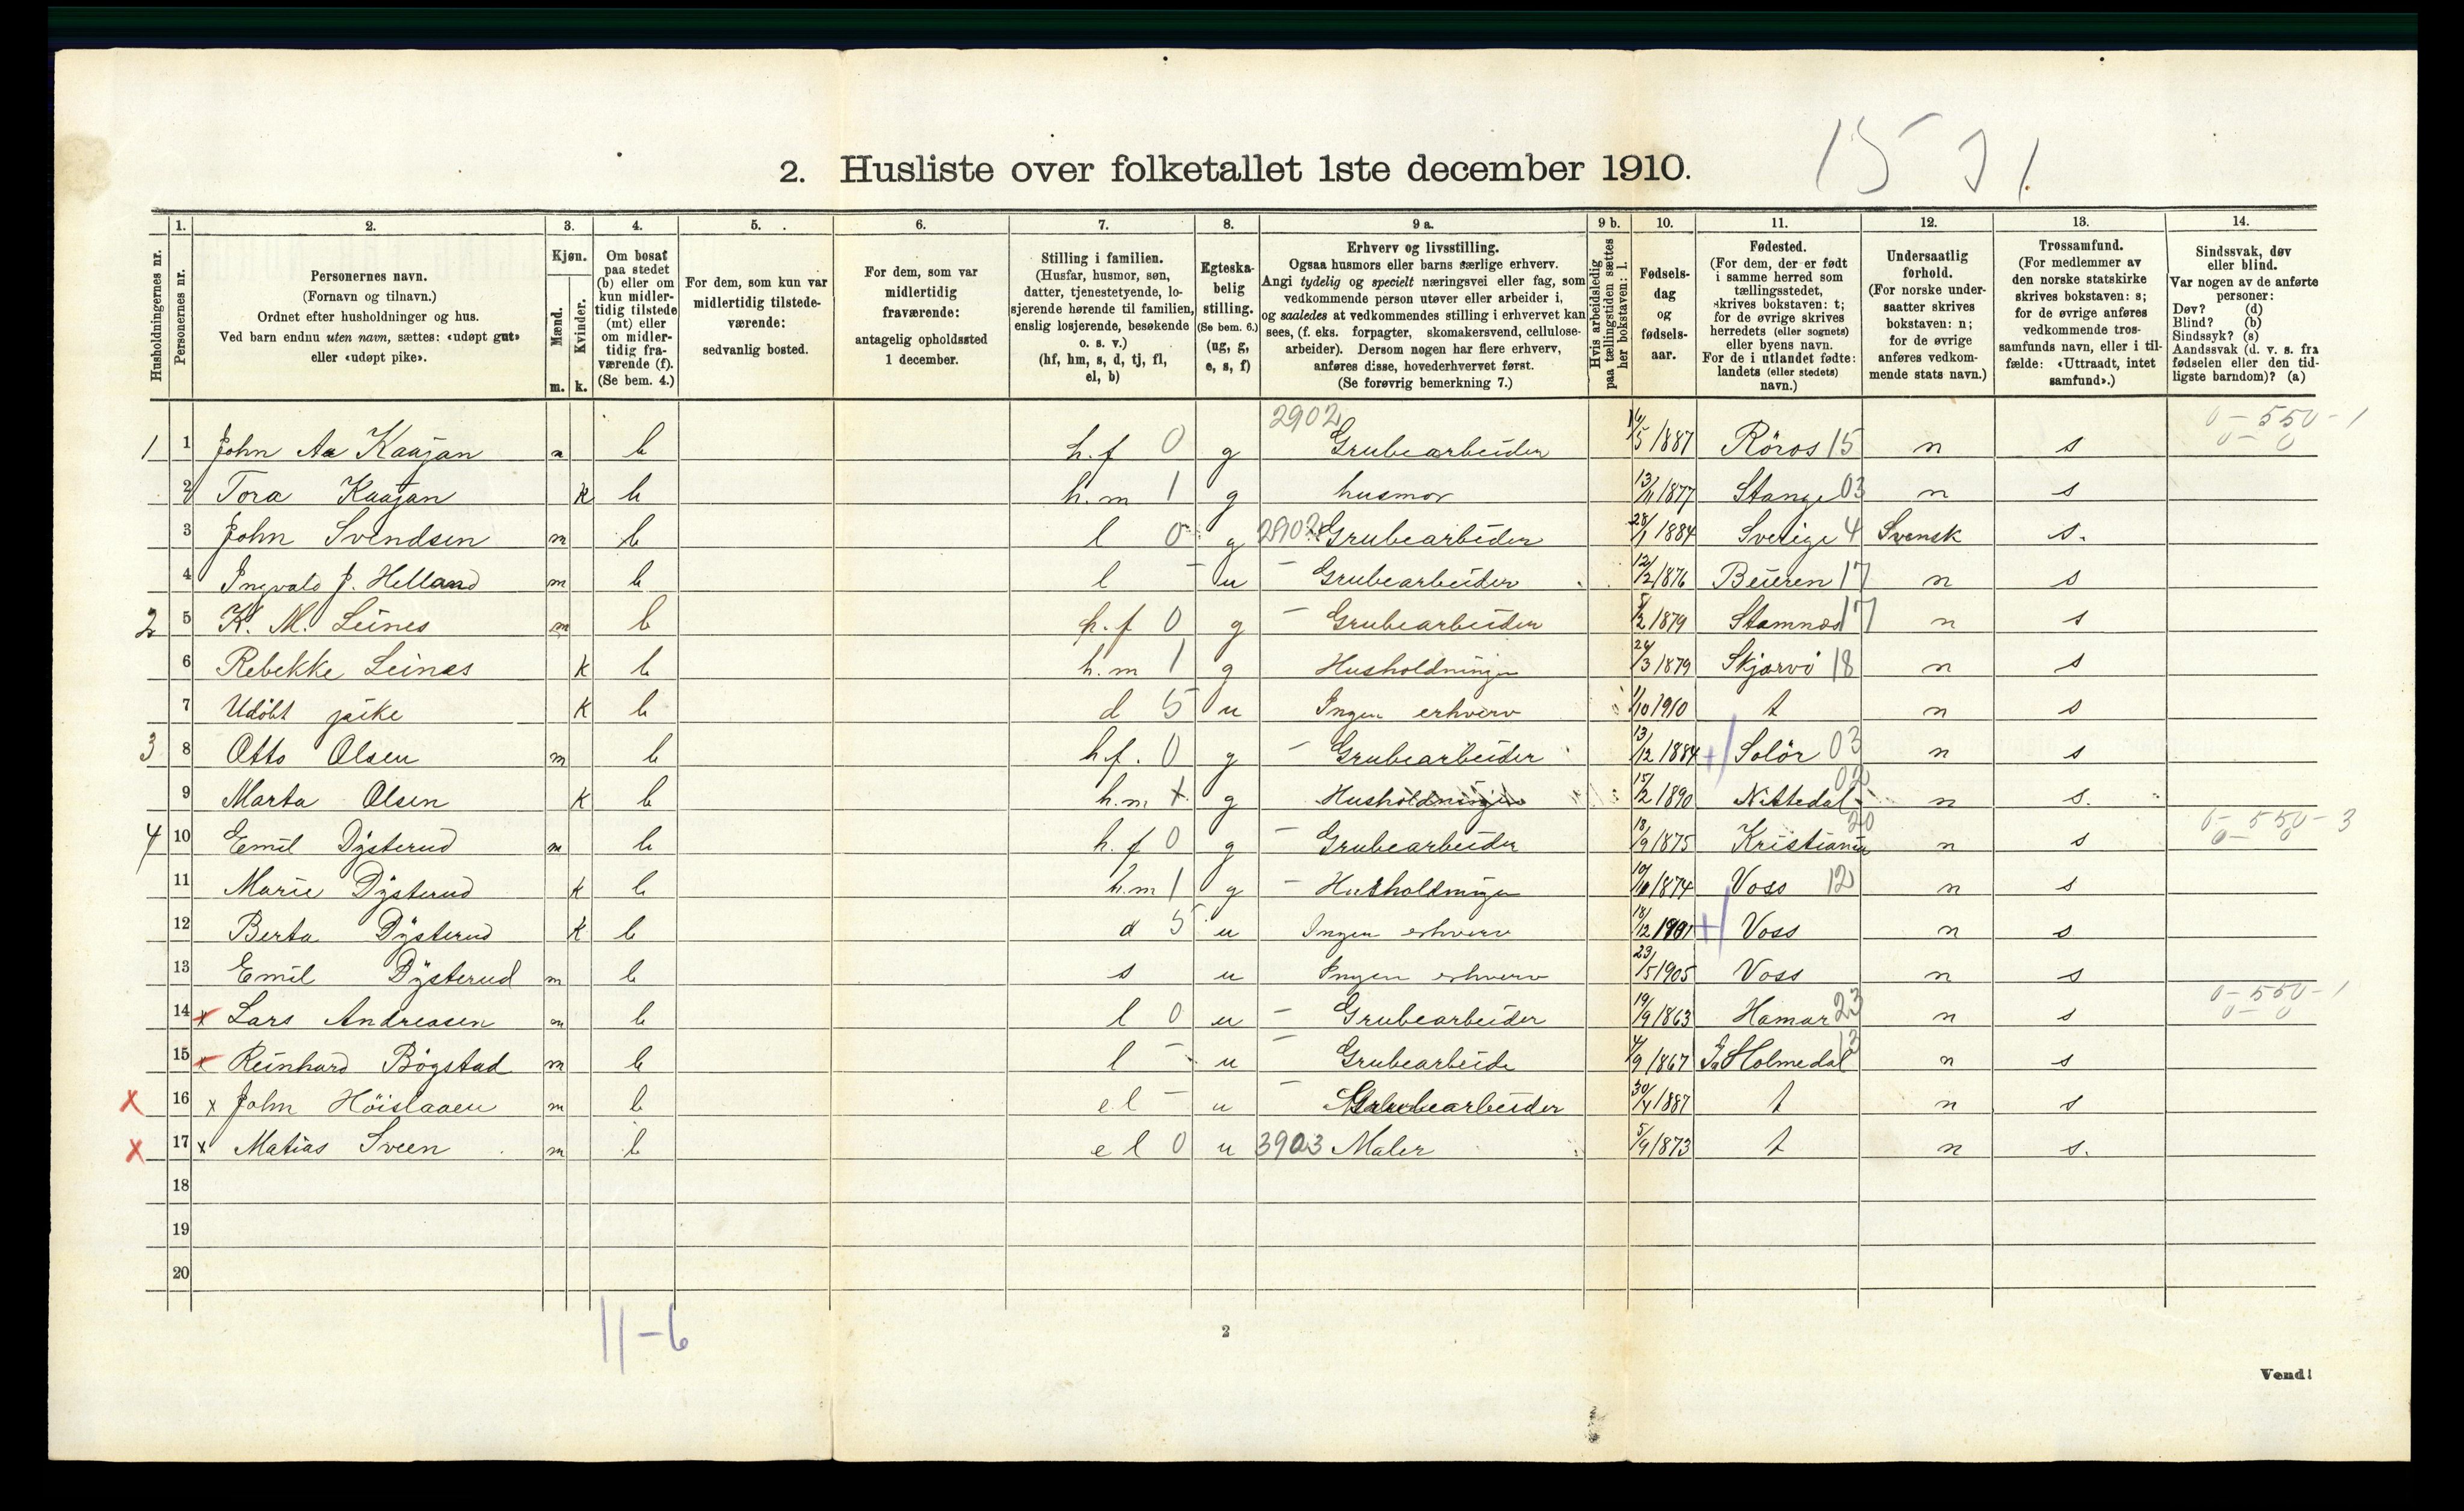 15 31
2. Husliste over folketallet 1ste december 1910.
Husholdningernes nr.
1. Personernes nr.
2. Personernes navn.
(Fornavn og tilnavn.)
Ordnet efter husholdninger og hus.
Ved barn endnu uten navn, sættes: «udøpt gut»
eller «udøpt pike».
3. Kjøn.
Mænd. m.
Kvinder. k.
4. Om bosat
paa stedet
(b) eller om
kun midler-
tidig tilstede
(mt) eller
om midler-
tidig fra-
værende (f).
(Se bem. 4.)
5. For dem, som kun var
midlertidig tilstede-
værende:
sedvanlig bosted.
6. For dem, som var
midlertidig
fraværende:
antagelig opholdssted
1 december.
7. Stilling i familien.
(Husfar, husmor, søn,
datter, tjenestetyende, lo-
sjerende hørende til familien,
enslig losjerende, besøkende
o. s. v.)
(hf, hm, s, d, tj, fl,
el, b)
8. Egteska-
belig
stilling.
(Se bem. 6.)
(ug, g,
e, s, f)
9 a. Erhverv og livsstilling.
Ogsaa husmors eller barns særlige erhverv.
Angi tydelig og specielt næringsvei eller fag, som
vedkommende person utøver eller arbeider i,
og saaledes at vedkommendes stilling i erhvervet kan
sees, (f. eks. forpagter, skomakersvend, cellulose-
arbeider). Dersom nogen har flere erhverv,
anføres disse, hovederhvervet først.
(Se forøvrig bemerkning 7.)
9 b. Hvis arbeidsledig
paa tællingstiden sættes
her bokstaven: l.
10. Fødsels-
dag
og
fødsels-
aar.
11. Fødested.
(For dem, der er født
i samme herred som
tællingsstedet,
skrives bokstaven: t;
for de øvrige skrives
herredets (eller sognets)
eller byens navn.
For de i utlandet fødte:
landets (eller stedets)
navn.)
12. Undersaatlig
forhold.
(For norske under-
saatter skrives
bokstaven: n;
for de øvrige
anføres vedkom-
mende stats navn.)
13. Trossamfund.
(For medlemmer av
den norske statskirke
skrives bokstaven: s;
for de øvrige anføres
vedkommende tros-
samfunds navn, eller i til-
fælde: «Uttraadt, intet
samfund».)
14. Sindssvak, døv
eller blind.
Var nogen av de anførte
personer:
Døv? (d)
Blind? (b)
Sindssyk? (s)
Aandssvak (d. v. s. fra
fødselen eller den tid-
ligste barndom)? (a)
1 1 John Aa Kaajan m b h.f 0 g 2902 Grubearbeider 16/5 1887 Röros 15 n s 0-550-1 0-0
2 Tora Kaajan k b h.m 1 g husmor 13/11 1877 Stange 03 n s
3 John Svendsen m b l 0 g 2902 Grubearbeider 28/1 1884 Sverige 4 Svensk s.
4 Ingvald J. Helland m b l - u - Grubearbeider 12/2 1876 Beieren 17 n s
2 5 K. M. Leines m b h.f 0 g - Grubearbeider 5/2 1879 Stamnes 17 n s
6 Rebekke Leines k b h.m 1 g Husholdningen 24/3 1879 Skjervö 18 n s
7 Udöbt pike k b d 5 u Ingen erhverv 1/10 1910 t n s
3 8 Otto Olsen m b h.f. 0 g - Grubearbeider 13/12 1884 Solör 03 n s
9 Marta Olsen k b h.m g Husholdningen 15/2 1890 Nittedal 02 n s.
4 10 Emil Dysterud m b h.f 0 g - Grubearbeider 18/9 1875 Kristiania 20 n s 0-550-3 0-0
11 Marie Dysterud k b h.m 1 g - Husholdningen 1874 Voss 12 n s
12 Berta Dysterud k b d 5 u Ingen erhverv 18/12 1901 Voss n s
13 Emil Dysterud m b s u Ingen erhverv 23/5 1905 Voss n s
14 x Lars Andreasen m b l 0 u - Grubearbeider 19/9 1863 Hamar 23 n s 0-550-1 0-0
15 x Reinhard Bøgstad m b l - u - Grubearbeide 4/9 1867 Holmedal 13 n s
x 16 x John Höislaaen m b el - u - Grubearbeider 30/4 1887 t n s
x 17 x Matias Sveen m b el 0 u 3903 Maler 5/9 1873 t n s.
18
19
20
11-6
2
Vend!